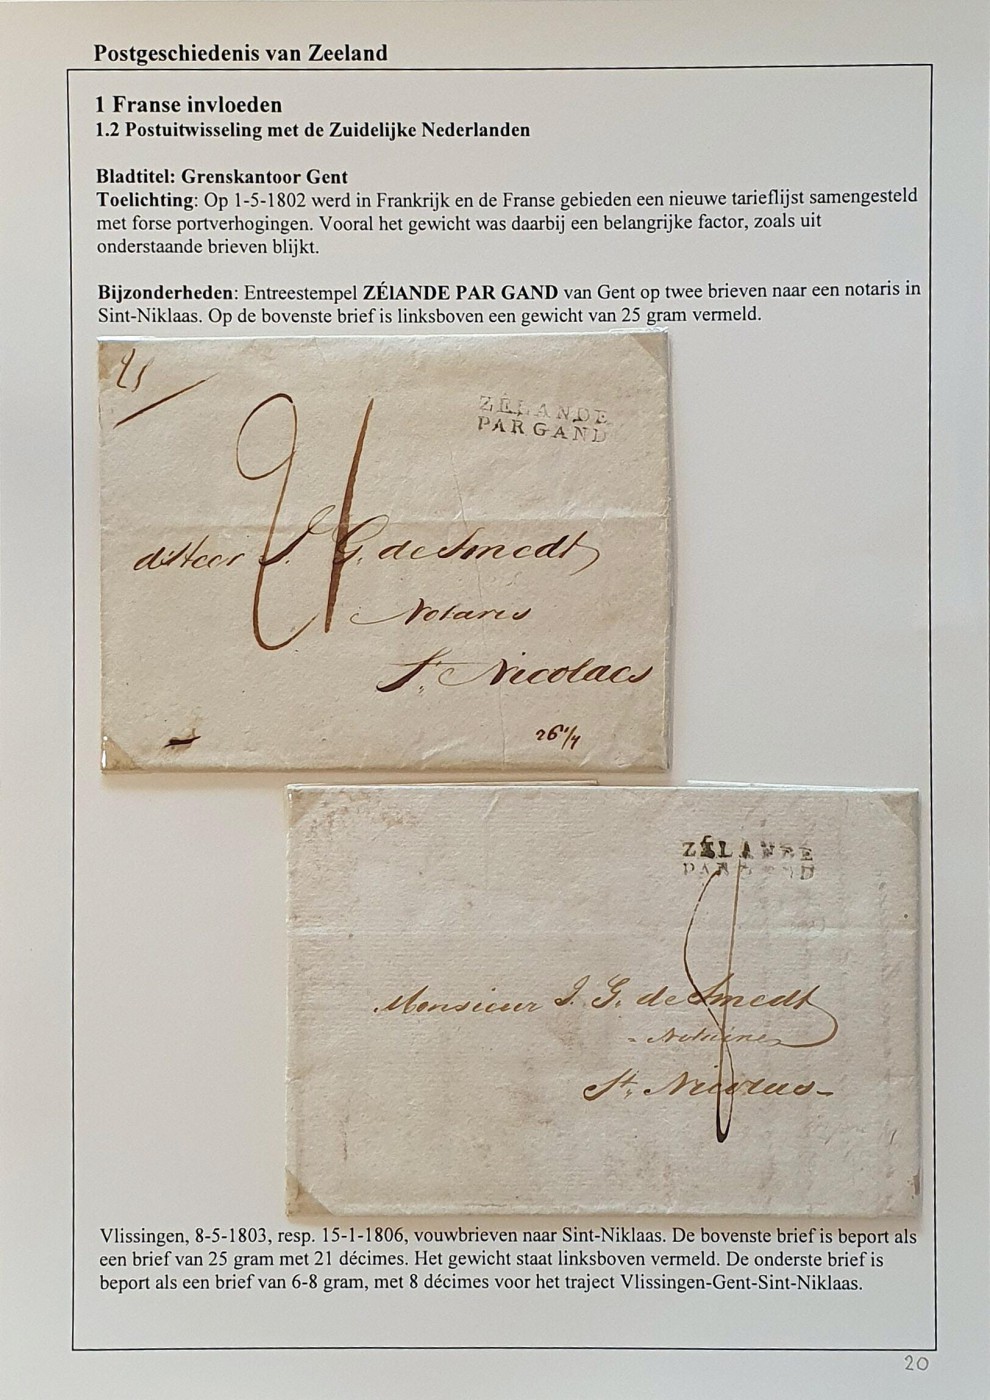 Postgeschiedenis van Zeeland
1 Franse invloeden
1.2 Postuitwisseling met de Zuidelijke Nederlanden
Bladtitel: Grenskantoor Gent
Toelichting: Op 1-5-1802 werd in Frankrijk en de Franse gebieden een nieuwe tarieflijst samengesteld
met forse portverhogingen. Vooral het gewicht was daarbij een belangrijke factor, zoals uit
onderstaande brieven blijkt.
Bijzonderheden: Entreestempel ZÉlANDE PAR GAND van Gent op twee brieven naar een notaris in
Sint-Niklaas. Op de bovenste brief is linksboven een gewicht van 25 gram vermeld.
ZÉLANDE
PAR GAND
21
J. G. de Smedt
Notaris
St. Nicolaes
26 1/4
ZÉLANDE
PAR GAND
8
Monsieur J. G. de Smedt
Notaire
St. Nicolas
Vlissingen, 8-5-1803, resp. 15-1-1806, vouwbrieven naar Sint-Niklaas. De bovenste brief is beport als
een brief van 25 gram met 21 décimes. Het gewicht staat linksboven vermeld. De onderste brief is
beport als een brief van 6-8 gram, met 8 décimes voor het traject Vlissingen-Gent-Sint-Niklaas.
20